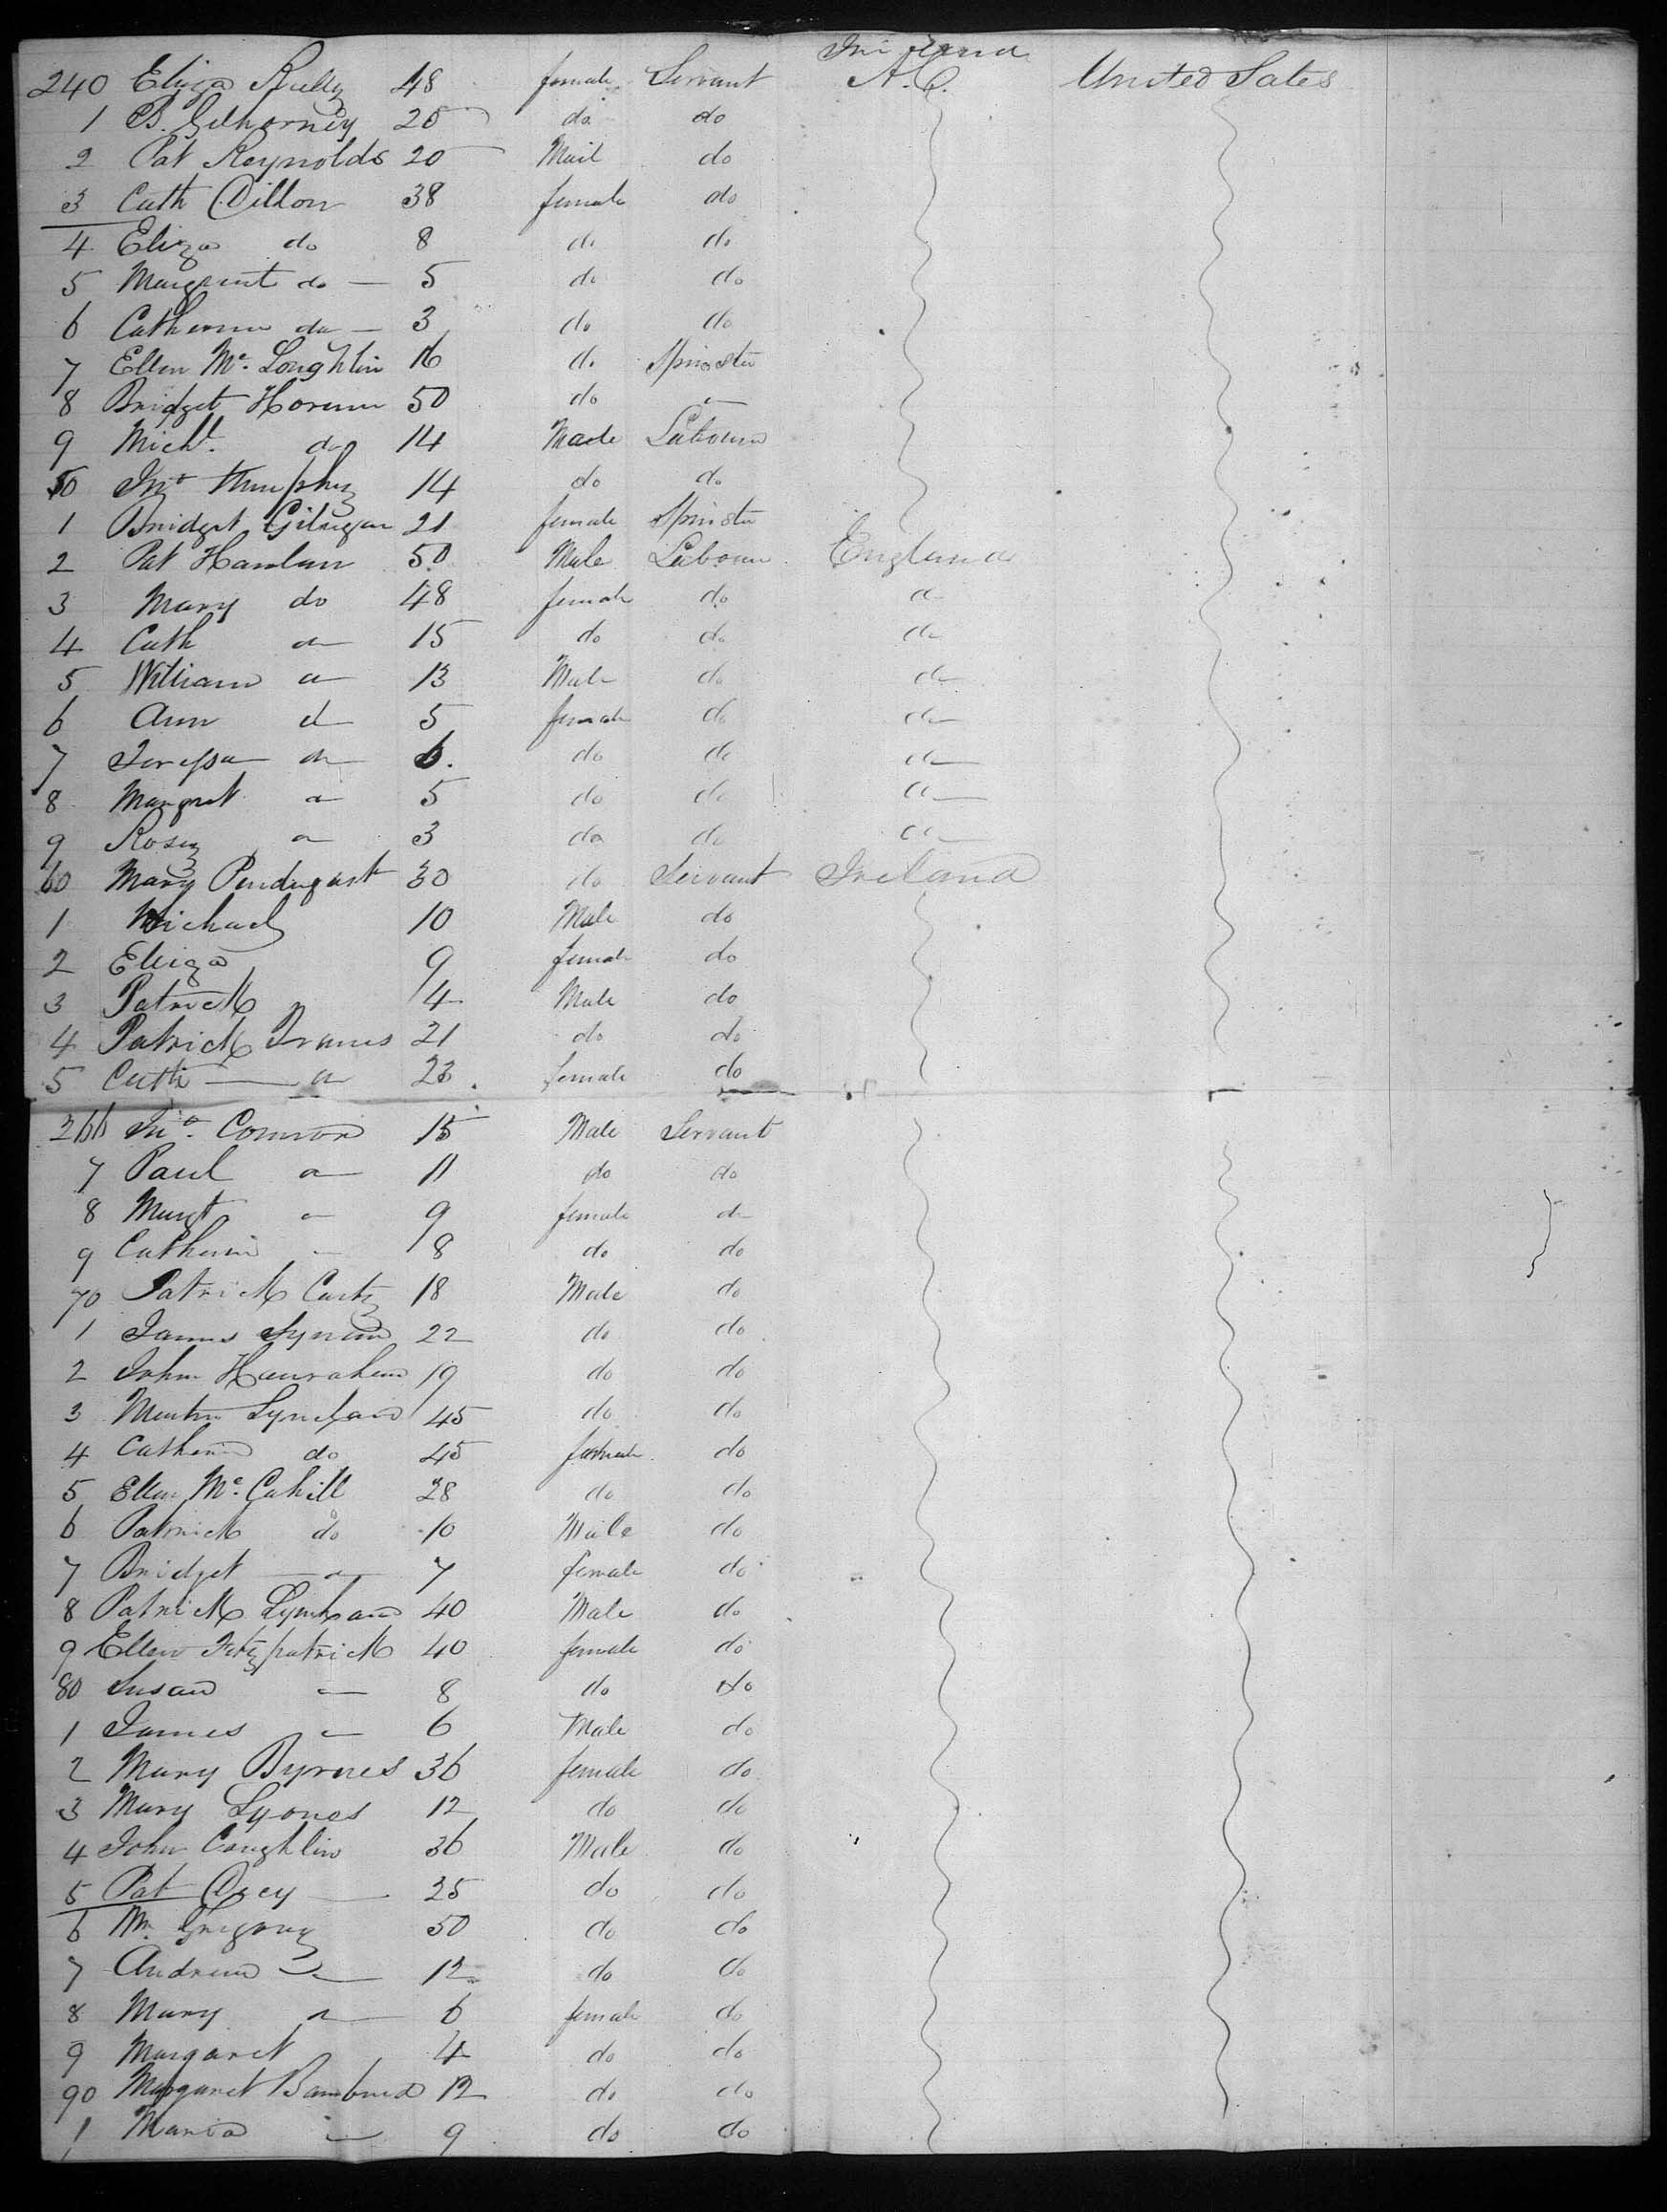 Ireland
240 Eliza Reilly 48 female Servant A.C. United Sates
1 B. Gilhorney 25 do do
2 Pat Reynolds 20 Mail do
3 Cath Dillon 38 female do
4 Eliza do 8 do do
5 Margreat do 5 do do
6 Catherine do 3 do do
7 Ellen Mc. Loughlin 16 do Spinster
8 Bridget 50 do do
9 Michl. do 14 Male Labourer
50 Jno Murphy 14 do do
1 Bridget Gilligan 21 female Spinster
2 Pat Hanlan 50 Male Labourer England
3 Mary do 48 female do do
4 Cath do 15 do do do
5 William do 13 Male do do
6 Ann do 5 female do do
7 Teressa do 6. do do do
8 Margret do 5 do do do
9 Rosey do 3 do do do
60 Mary Pendergast 30 do Servant Ireland
1 Michael 10 Male do
2 Eliza 9 female do
3 Patrick 4 Male do
4 Patrick 21 do do
5 Cath do 23 female do
266 Jno. Connors 15 Male Servant
7 Paul do 11 do do
8 Margt do 9 female do
9 Catherine 8 do do
70 Patrick Carty 18 Male do
1 James 22 do do
2 John Hanrahan 19 do do
3 45 do do
4 Catherine do 45 female do
5 Ellen Mc. Cahill 28 do do
6 Patrick do 10 Male do
7 Bridget do 7 female do
8 Patrick 40 Male do
9 Ellen Fitzpatrick 40 female do
80 Susan do 8 do do
1 James do 6 Male do
2 Mary Byrnes 36 female do
3 Mary Lyones 12 do do
4 John Coughlin 36 Male do
5 Pat 25 do do
6 Gregory 50 do do
7 Andrew do 12 do do
8 Mary do 6 female do
9 Margaret 4 do do
90 Margaret 12 do do
1 Maria 9 do do